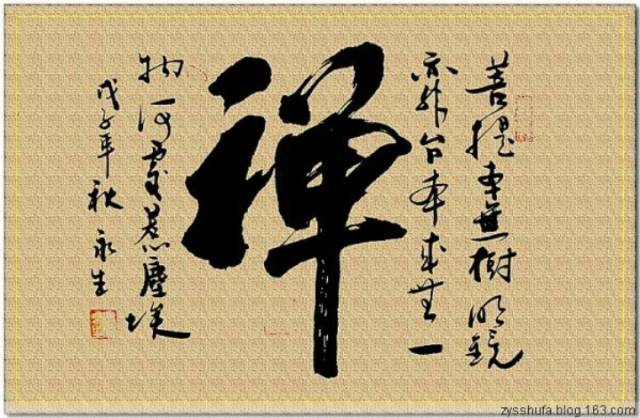 菩提本無樹明鏡
亦非台本来無一
禅
物何處惹塵埃
戊子年秋永生
zysshufa.blog.163.com